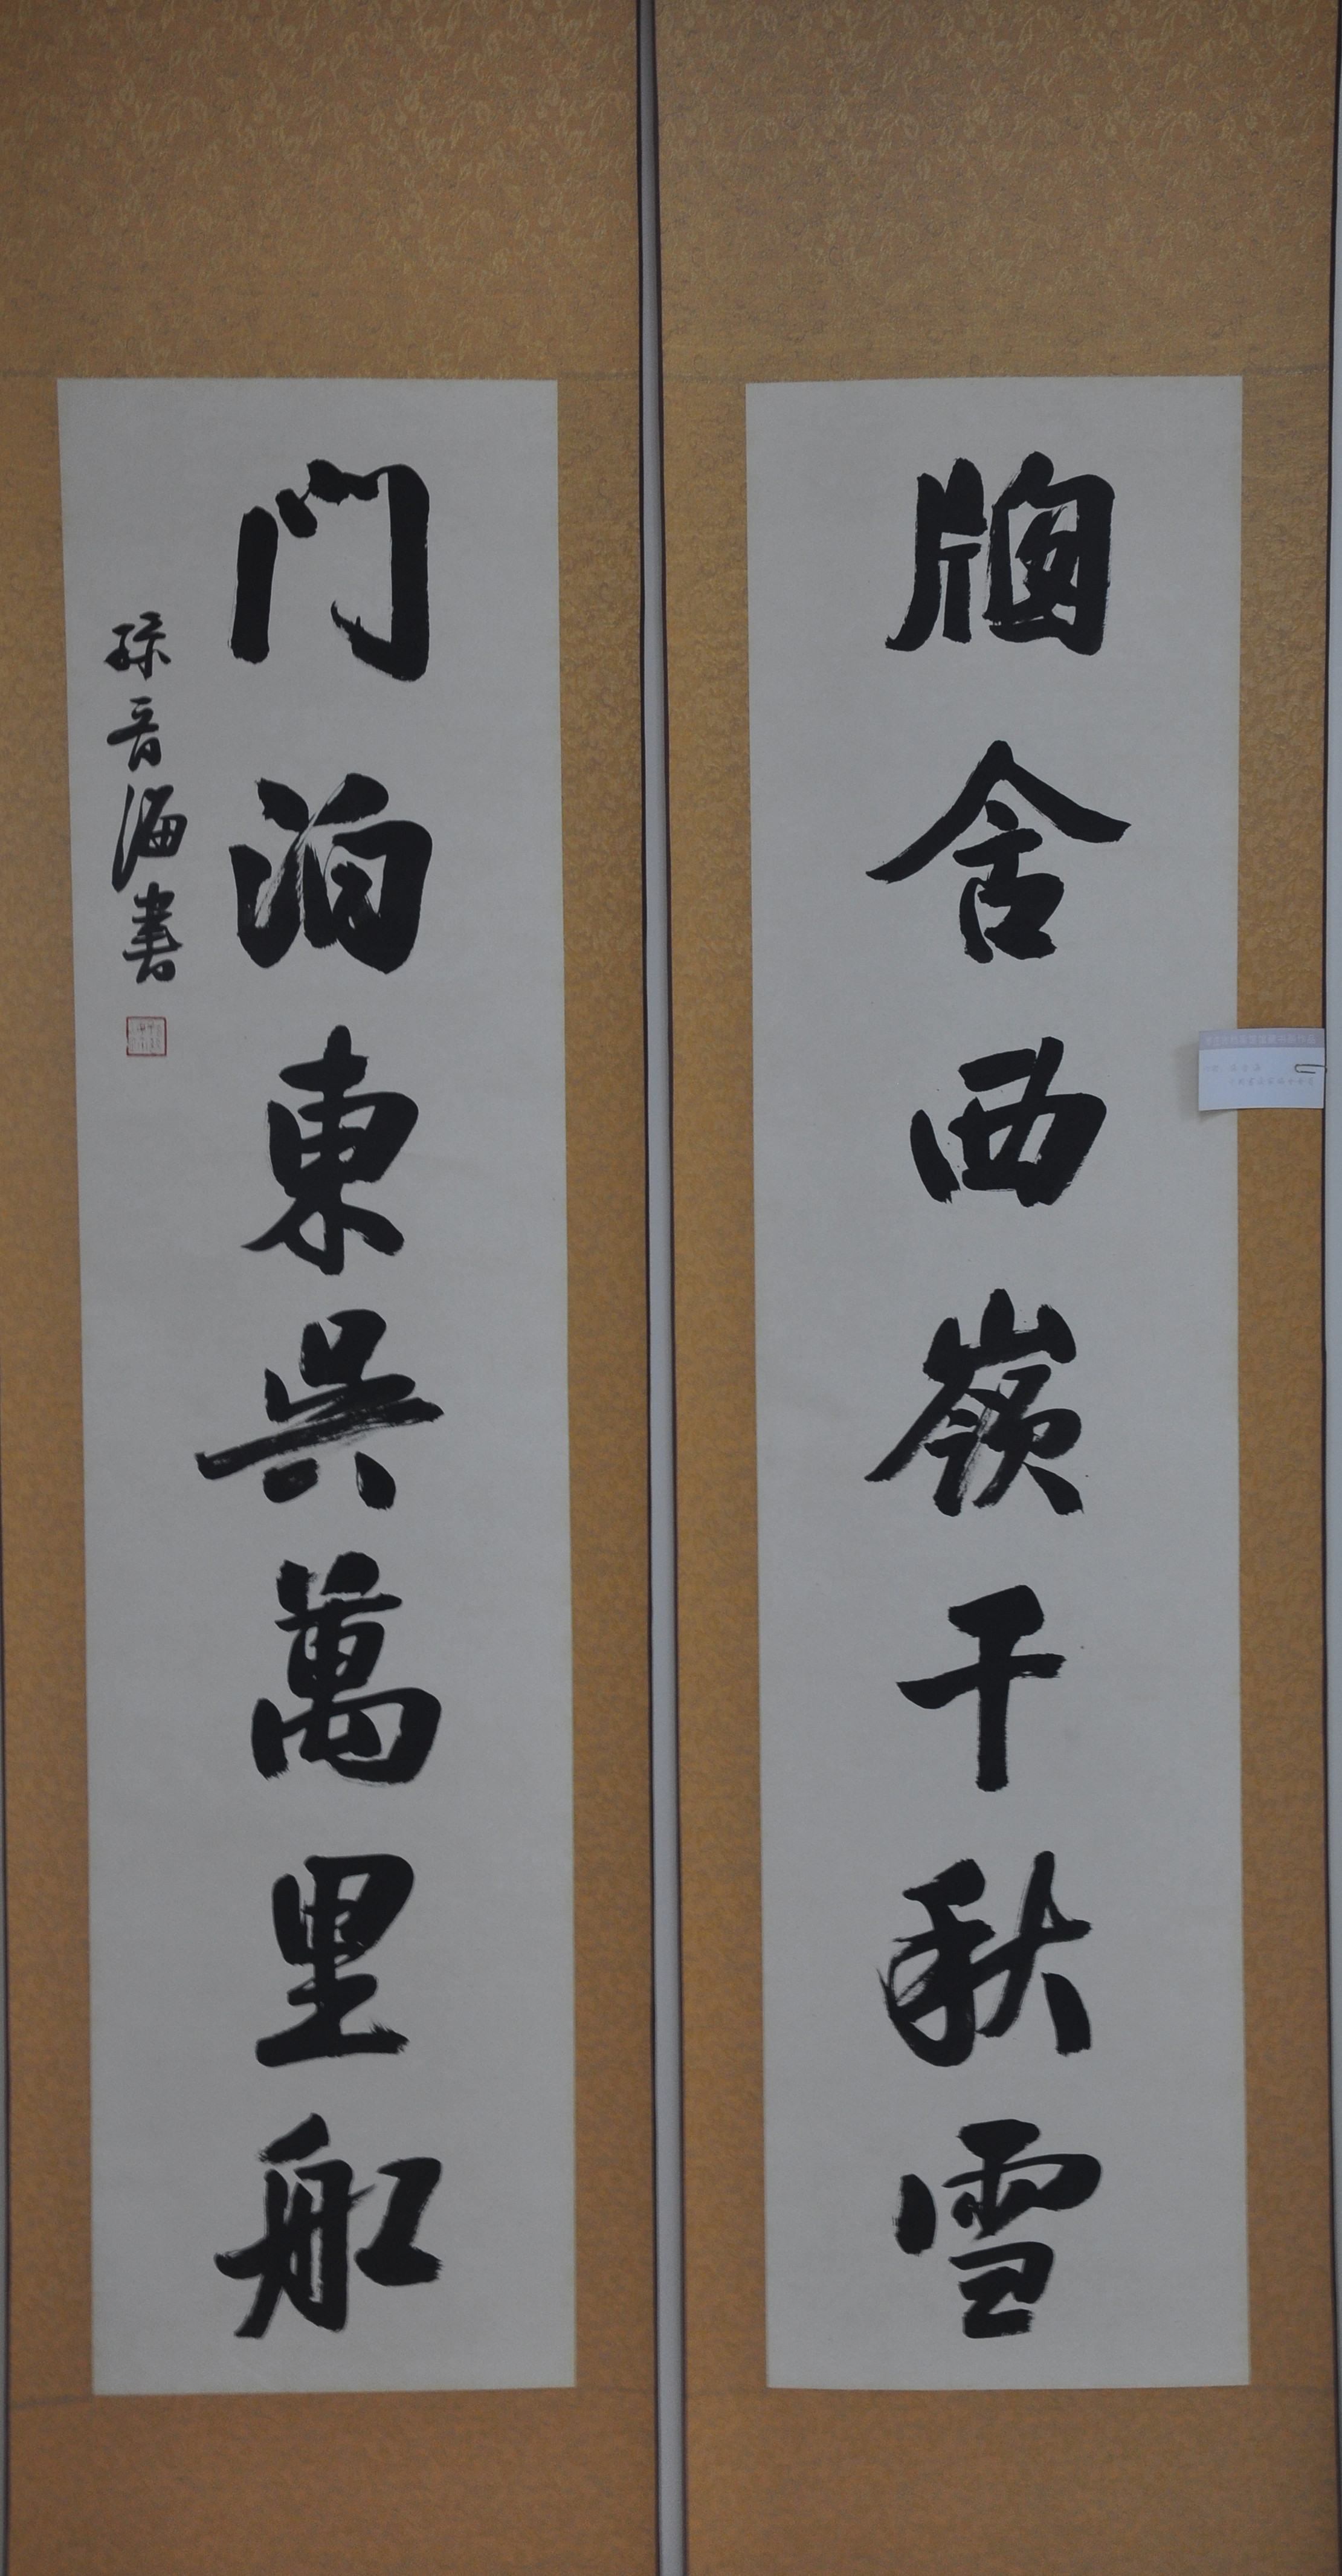 牕含西嶺千秋雪
门泊東吴萬里船
孫音海書